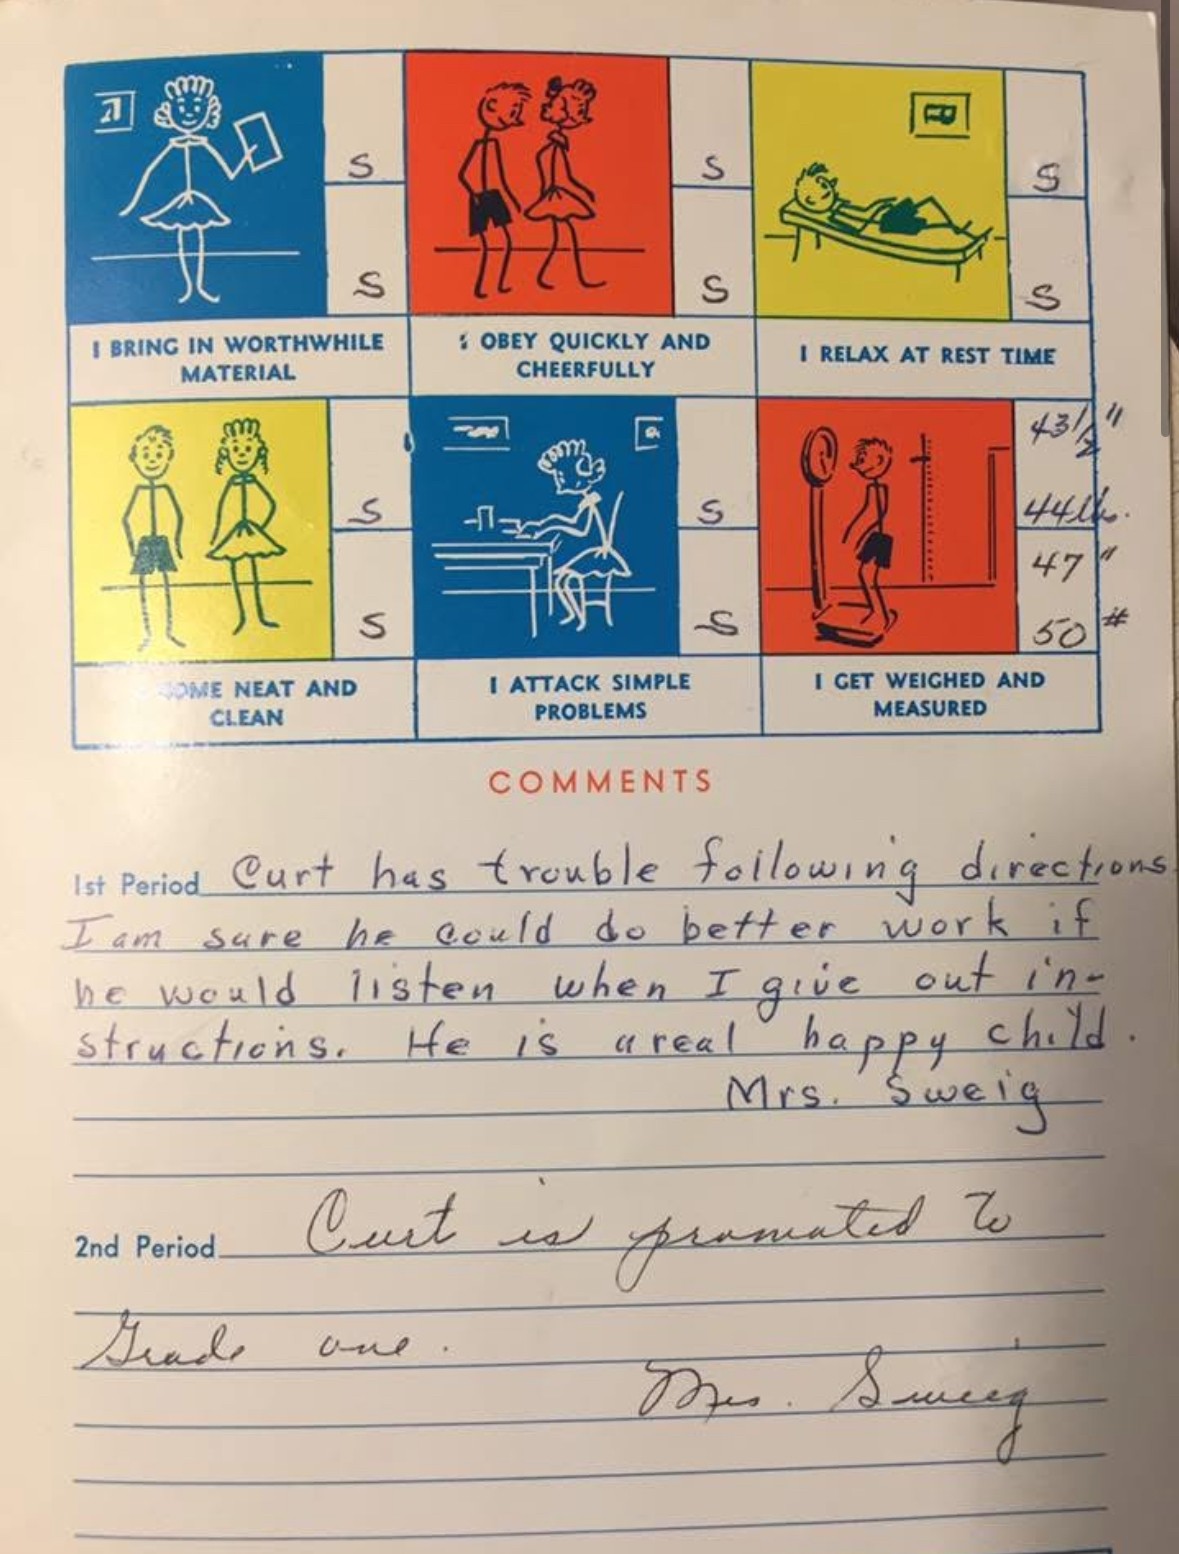 S
S
S
S
S
S
I BRING IN WORTHWHILE
MATERIAL
OBEY QUICKLY AND
CHEERFULLY
I RELAX AT REST TIME
S
S
43 1/2 "
44 lbs.
S
S
47 "
50 #
NEAT AND
CLEAN
I ATTACK SIMPLE
PROBLEMS
I GET WEIGHED AND
MEASURED
COMMENTS
1st Period Curt has trouble following directions
I am sure he could do better work if
he would listen when I give out in-
structions. He is a real happy child.
Mrs. Sweig
2nd Period Curt is promoted to
Grade one.
Mrs. Sweig